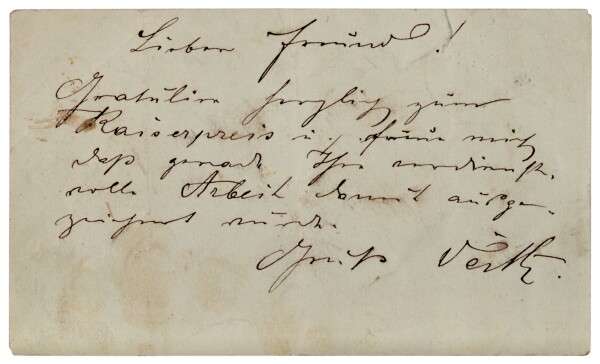 Lieber Freund!
Gratuliere herzlich zum
Kaiserpreis u. freue mich
daß gerade Ihre verdienst-
volle Arbeit damit ausge-
zeichnet wurde.
Gruß